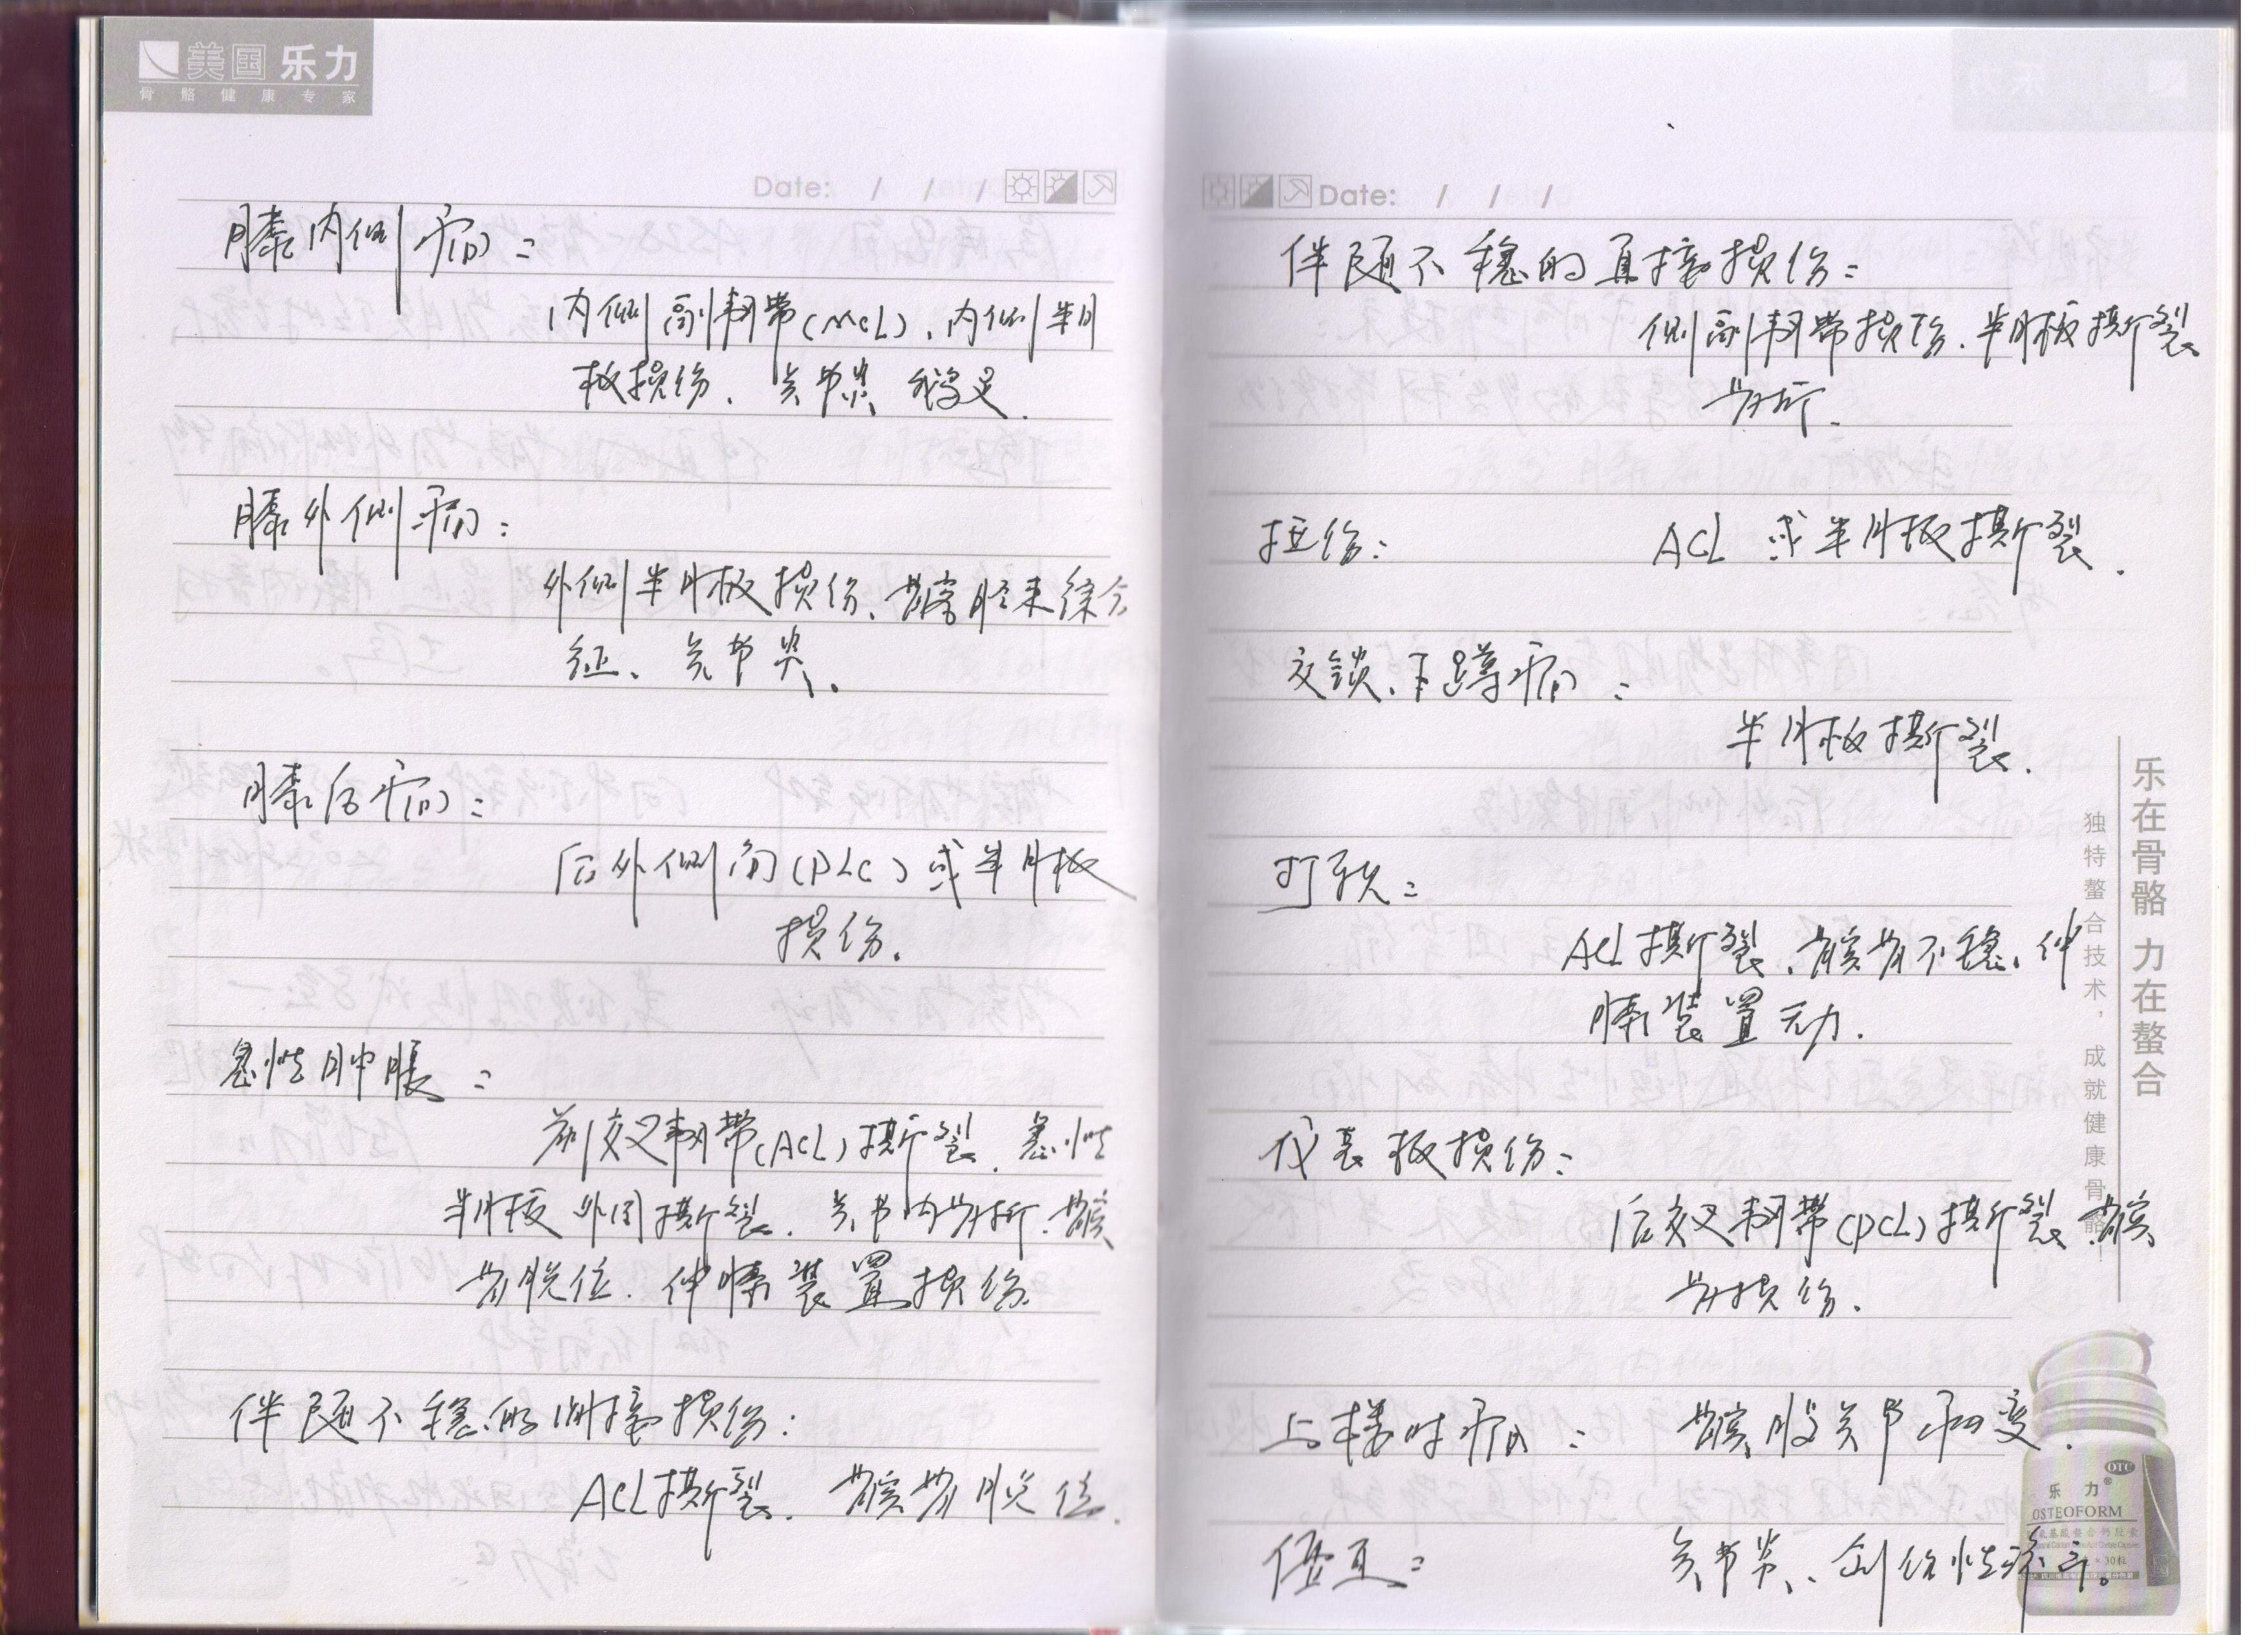 美国 乐力
骨骼健康专家
Date: / / /
膝内侧痛:
内侧副韧带(MCL)、内侧半月
板损伤、关节炎、鹅足.
膝外侧痛:
外侧半月板损伤、髂胫束综合
征、关节炎.
膝后痛:
后外侧角(PLC)或半月板
损伤.
急性肿胀:
前交叉韧带(ACL)撕裂、急性
半月板外周撕裂、关节内骨折、髌
骨脱位、伸膝装置损伤
伴随不稳的间接损伤:
ACL撕裂、髌骨脱位.
Date: / / /
伴随不稳的直接损伤:
侧副韧带损伤、半月板撕裂
骨折.
拉伤: ACL 或半月板撕裂.
交锁、下蹲痛:
半月板撕裂.
打软:
ACL撕裂、髌骨不稳、伸
膝装置无力.
仪表板损伤:
后交叉韧带(PCL)撕裂 髌
骨损伤.
上楼时痛: 髌股关节病变.
僵直: 关节炎、创伤性
乐在骨骼 力在螯合
独特螯合技术，成就健康骨骼！
OTC
乐力®
OSTEOFORM
30粒